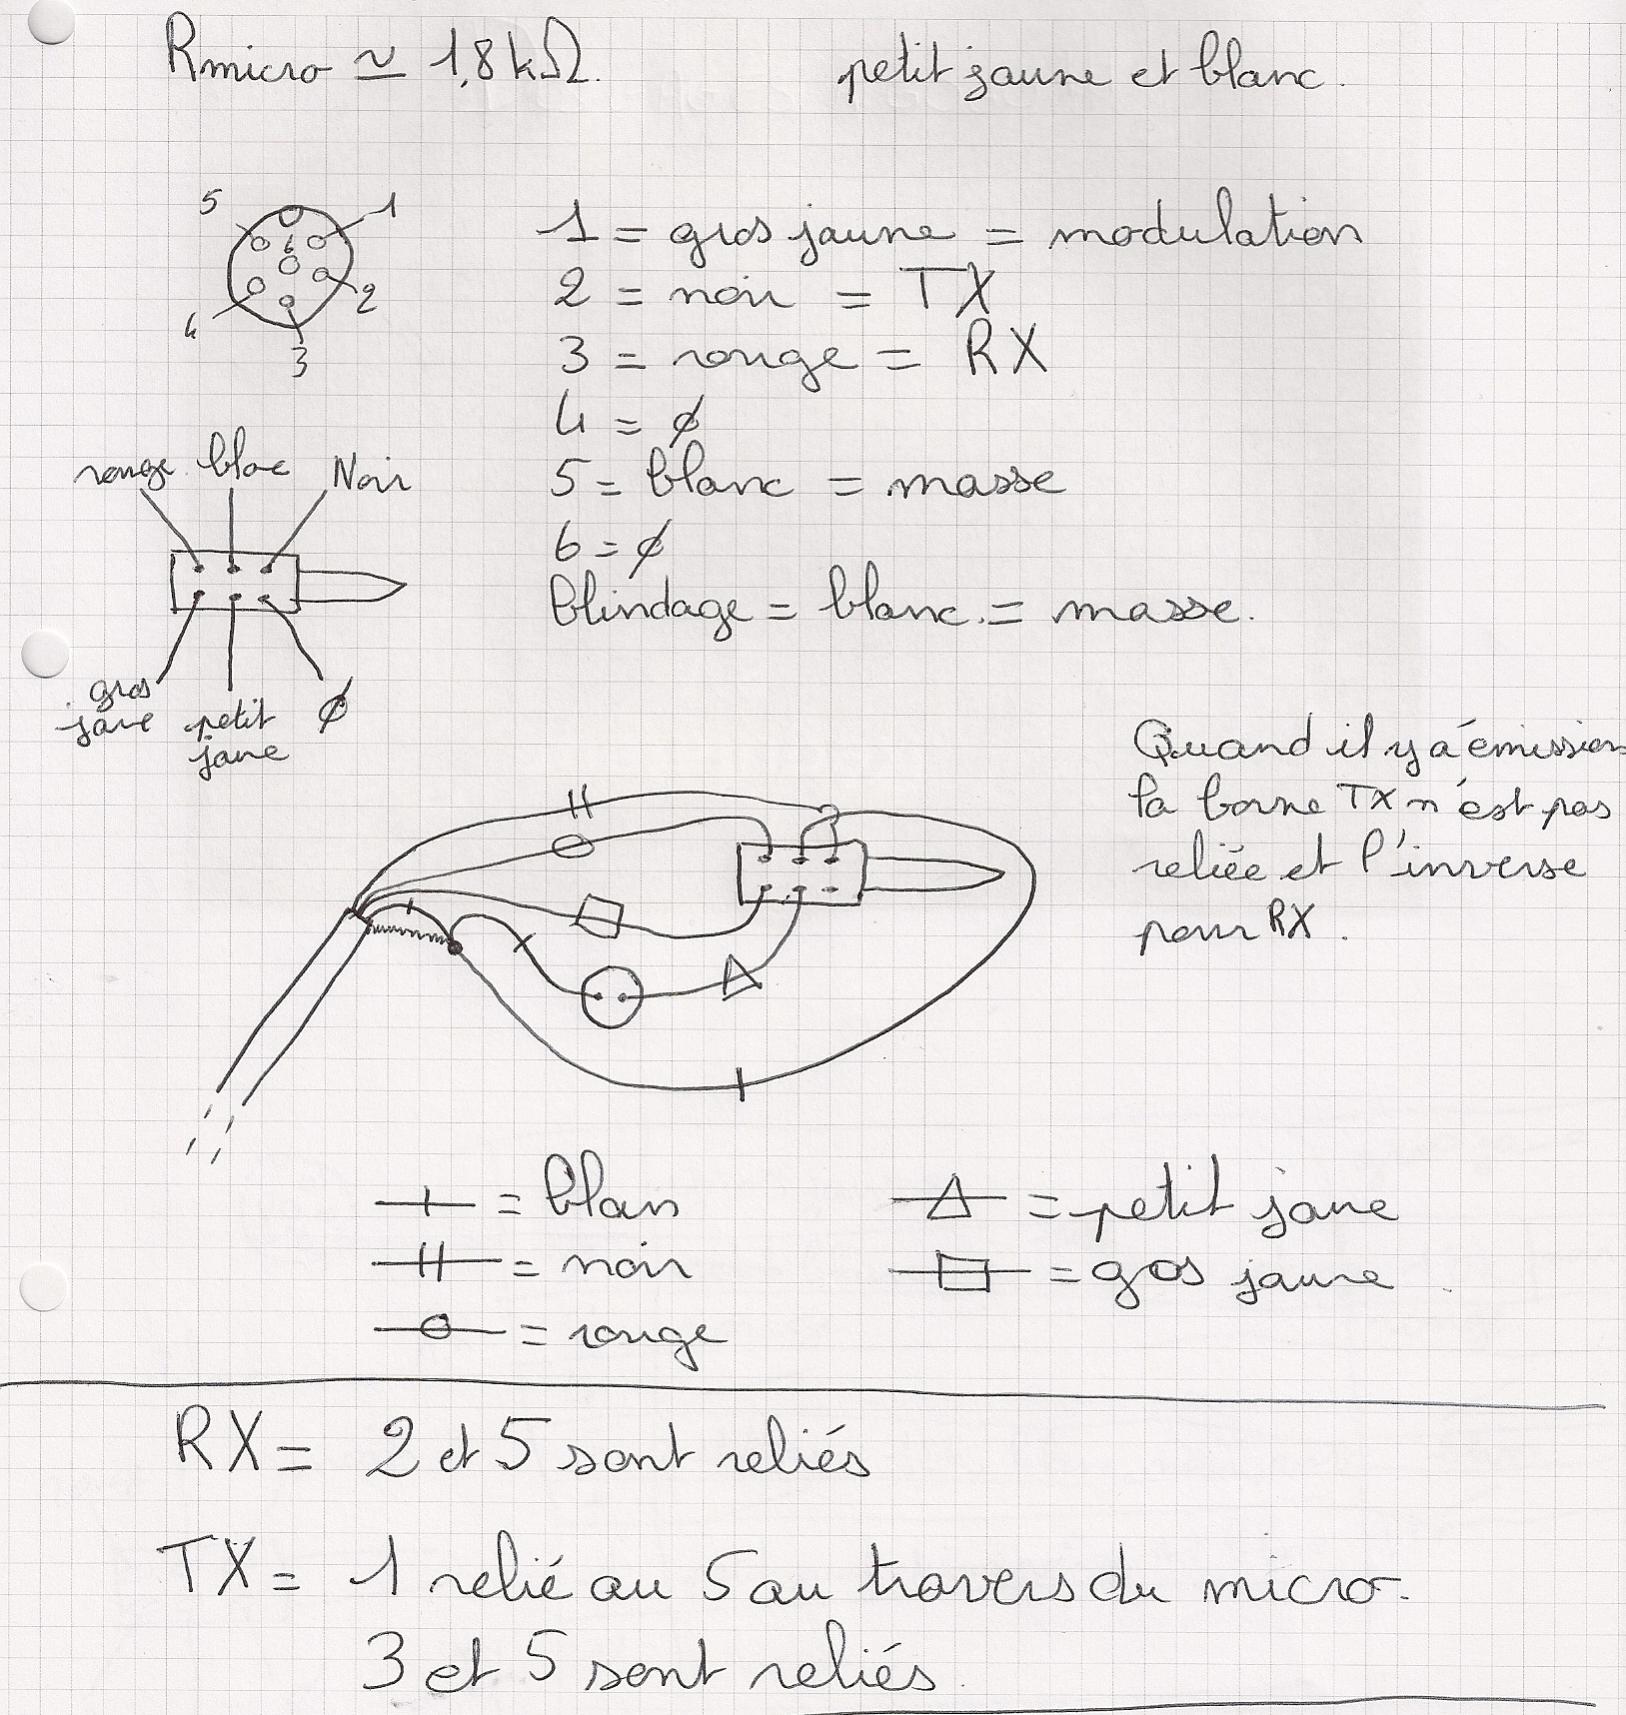 Rmicro ≃ 1,8 kΩ.
petit jaune et blanc.
5 1
6
4 2
3
1 = gros jaune = modulation
2 = noir = TX
3 = rouge = RX
4 = ∅
5 = blanc = masse
6 = ∅
blindage = blanc. = masse.
rouge blac Noir
gros
jaue petit ∅
jaune
Quand il y a émission
la borne TX n'est pas
reliée et l'inverse
pour RX.
= blanc
= noir
= rouge
= petit jaune
= gos jaune
RX = 2 et 5 sont reliés
TX = 1 relié au 5 au travers du micro.
3 et 5 sont reliés.